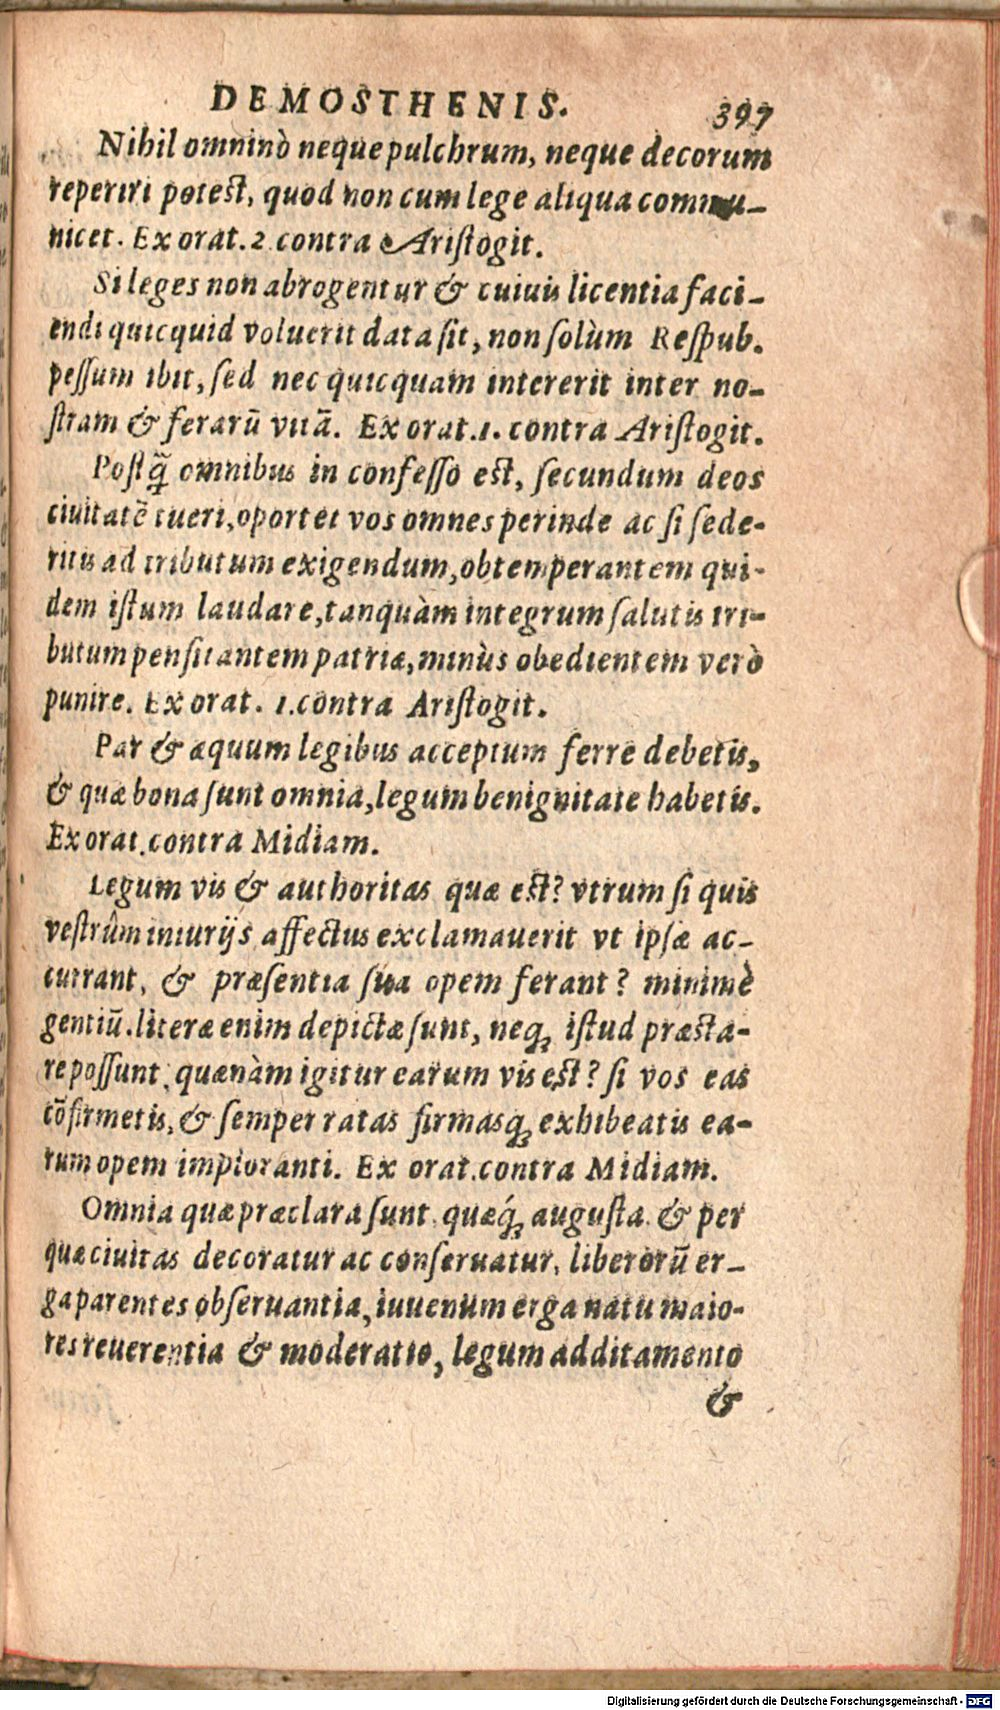 DEMOSTHENIS. 397
Nihil omninò neque pulchrum, neque decorum
reperiri potest, quod non cum lege aliqua commu-
nicet. Ex orat. 2. contra Aristogit.
Si leges non abrogentur & cuiuis licentia faci-
endi quicquid voluerit data sit, non solùm Respub.
pessum ibit, sed nec quicquam intererit inter no-
stram & ferarū vitā. Ex orat. 1. contra Aristogit.
Postq̃ omnibus in confesso est, secundum deos
ciuitatē tueri, oportet vos omnes perinde ac si sede-
ritis ad tributum exigendum, obtemperantem qui-
dem istum laudare, tanquàm integrum salutis tri-
butum pensitantem patriæ, minùs obedientem verò
punire. Ex orat. 1. contra Aristogit.
Par & æquum legibus acceptum ferre debetis,
& quæ bona sunt omnia, legum benignitate habetis.
Ex orat. contra Midiam.
Legum vis & authoritas quæ est? vtrum si quis
vestrûm iniurijs affectus exclamauerit vt ipsæ ac-
currant, & præsentia sua opem ferant? minimè
gentiū. literæ enim depictæ sunt, neq; istud præsta-
re possunt, quænàm igitur earum vis est? si vos eas
cōfirmetis, & semper ratas firmasq; exhibeatis ea-
rum opem imploranti. Ex orat. contra Midiam.
Omnia quæ præclara sunt, quæq́; augusta & per
quæ ciuitas decoratur ac conseruatur, liberorū er-
ga parentes obseruantia, iuuenum erga natu maio-
res reuerentia & moderatio, legum additamento
&
Digitalisierung gefördert durch die Deutsche Forschungsgemeinschaft - DFG